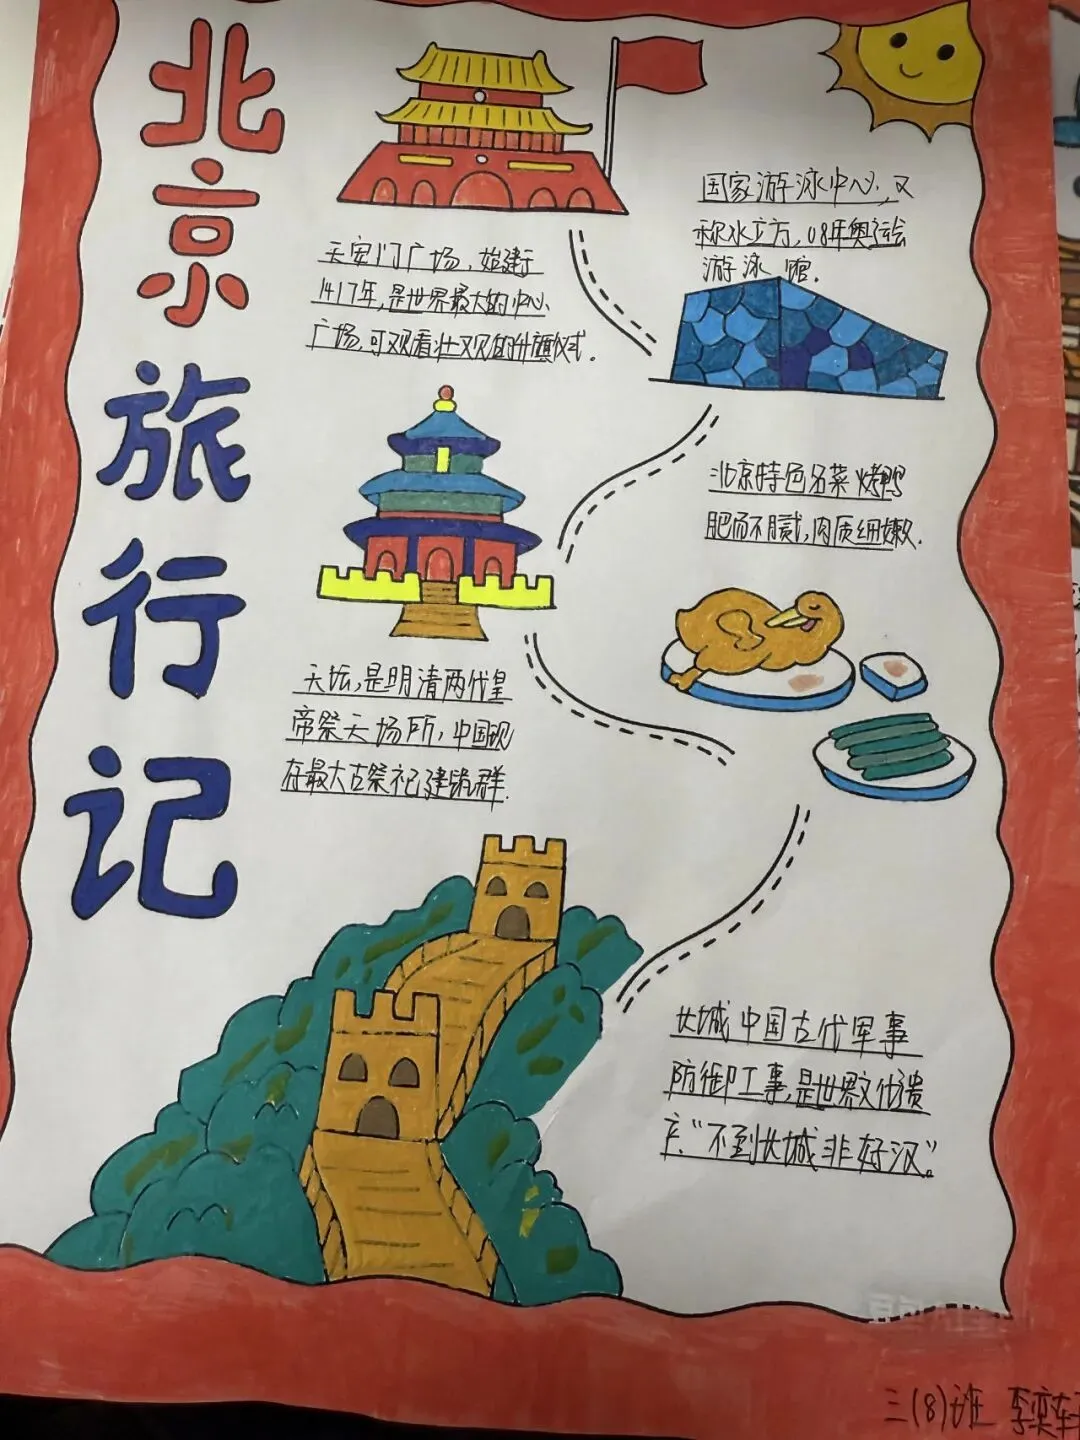 北京旅行记
天安门广场，始建于
1417年，是世界最大的中心
广场，可观看壮观的升旗仪式.
国家游泳中心，又
称水立方，08年奥运会
游泳馆.
北京特色名菜烤鸭
肥而不腻，肉质细嫩.
天坛，是明清两代皇
帝祭天场所，中国现
存最大古祭祀建筑群.
长城中国古代军事
防御工事，是世界文化遗
产，“不到长城非好汉”。
三(8)班 李奕轩